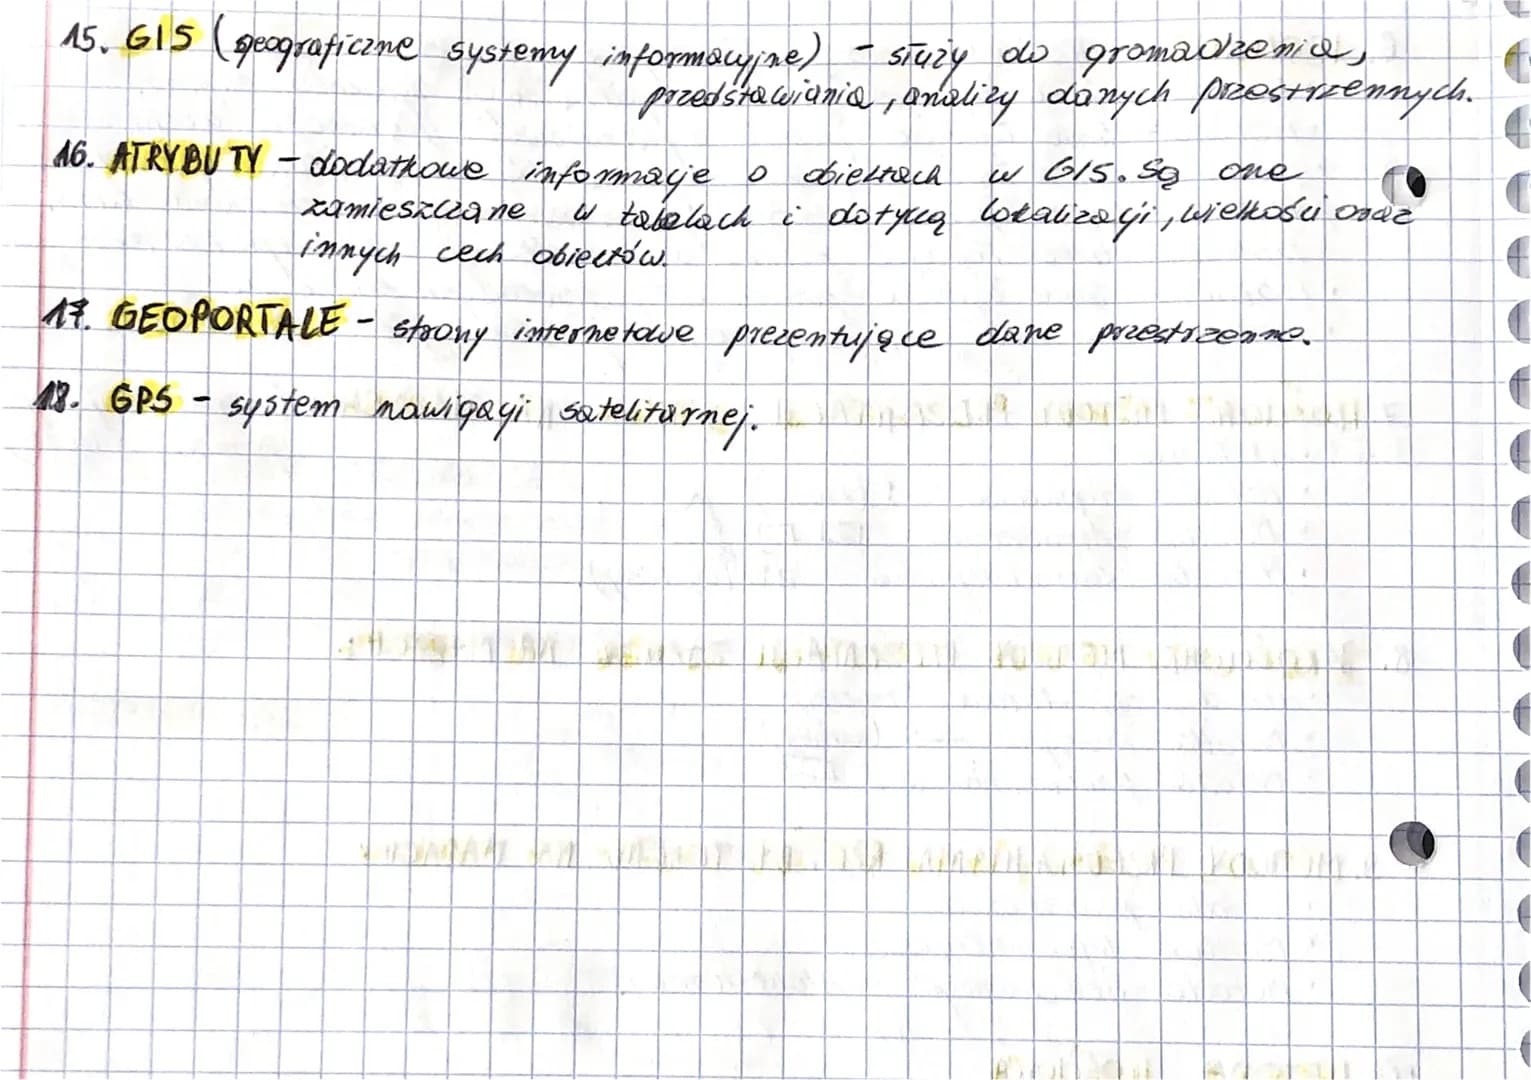 15. GIS (geograficzne systemy informacyjne) - służy do gromadzenia,
przedstawiania, analizy danych przestrzennych.
16. ATRYBUTY - dodatkowe informacje o obiektach w GIS. Są one
zamieszczane w tabelach i dotyczą lokalizacji, wielkości oraz
innych cech obiektów.
17. GEOPORTALE - strony internetowe prezentujące dane przestrzenne.
18. GPS - system nawigacji satelitarnej.